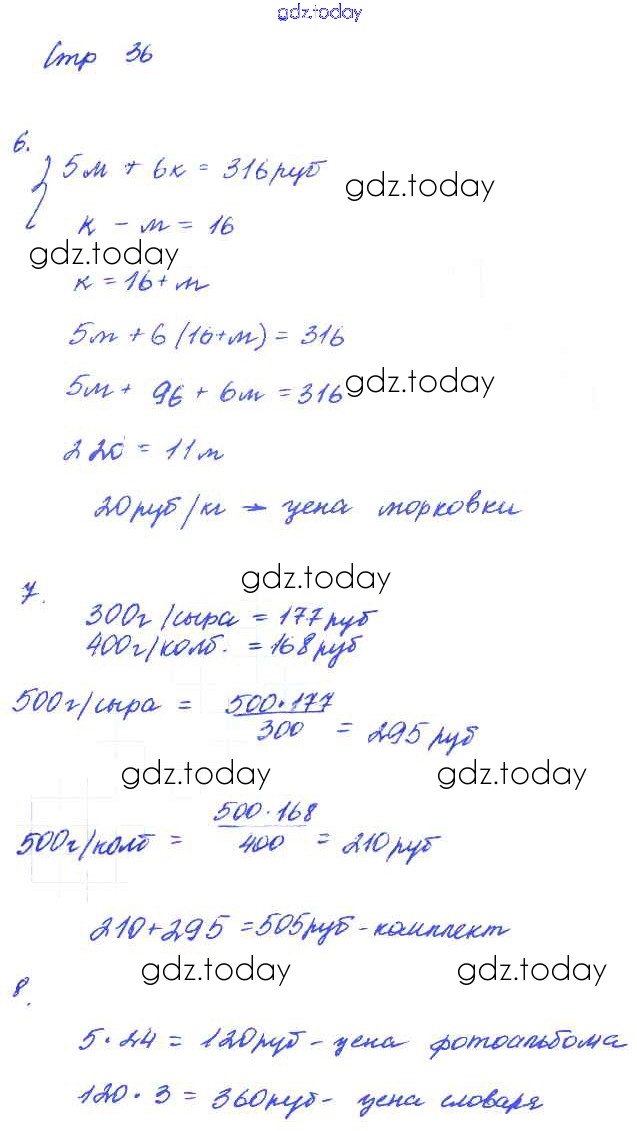 gdz.today
Стр 36
6.
5м + 6к = 316руб
gdz.today
к - м = 16
gdz.today
к = 16 + м
5м + 6 (16+м) = 316
5м + 96 + 6м = 316
gdz.today
220 = 11м
20руб/кг → цена морковки
gdz.today
7.
300г/сыра = 177руб
400г/колб. = 168руб
500г/сыра = 500·177/300 = 295руб
gdz.today gdz.today
500г/колб = 500·168/400 = 210руб
210+295 = 505руб - комплект
gdz.today gdz.today
8.
5·24 = 120руб - цена фотоальбома
120·3 = 360руб - цена словаря